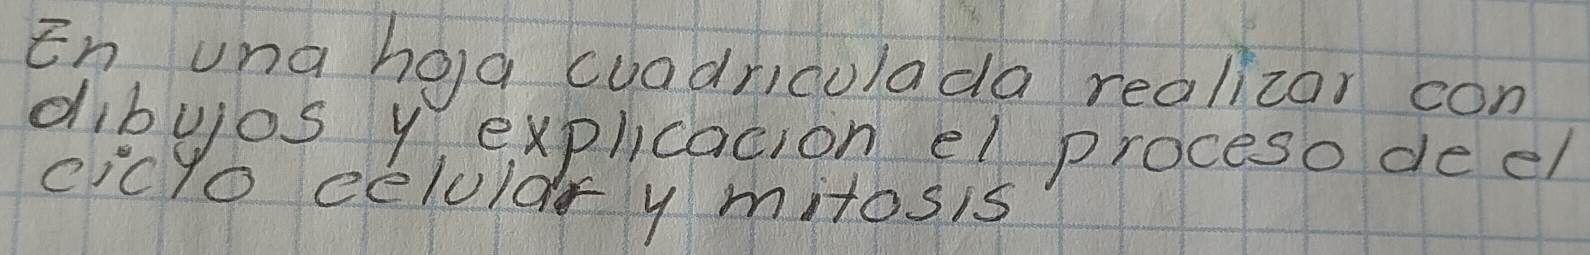 En una hoja cuadriculada realizar con
dibujos y explicacion el proceso de el
ciclo celular y mitosis